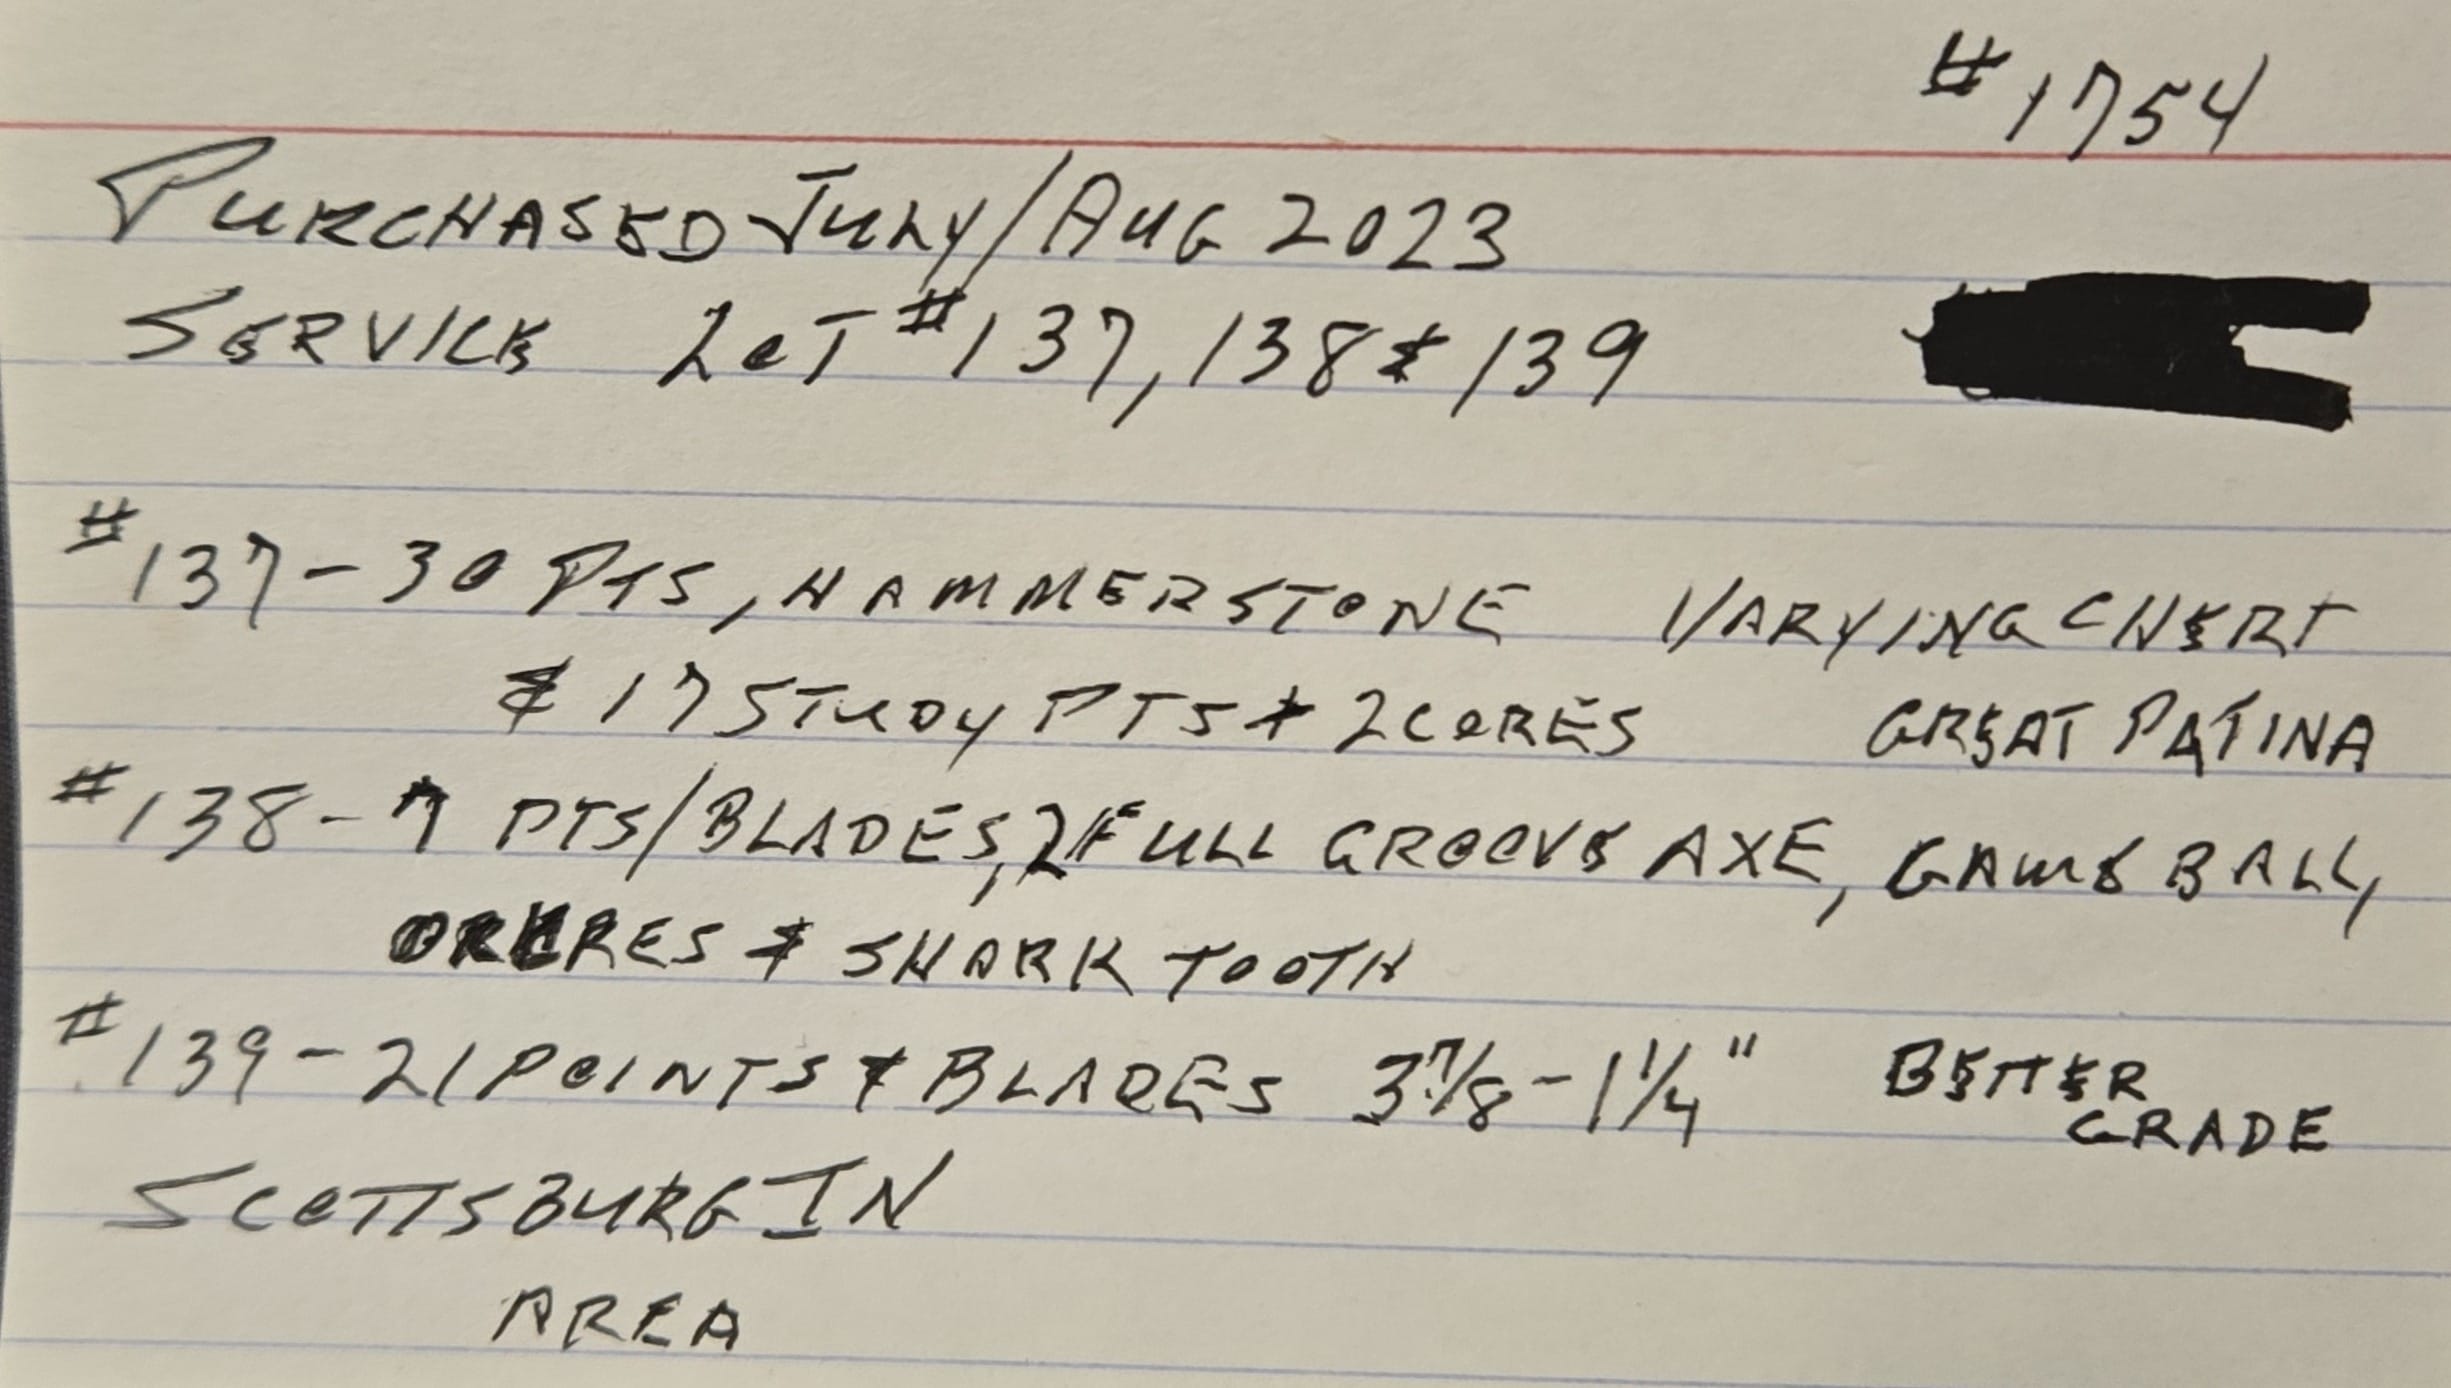 #1754
PURCHASED JULY/AUG 2023
SERVICE LOT #137, 138 & 139
#137 - 30 PTS, HAMMERSTONE VARYING CHERT
& 17 STUDY PTS & 2 CORES GREAT PATINA
#138 - 7 PTS/BLADES, 2 FULL GROOVE AXE, GAME BALL,
& SHARK TOOTH
#139 - 21 POINTS & BLADES 3 7/8 - 1 1/4" BETTER
GRADE
SCOTTSBURG IN
AREA